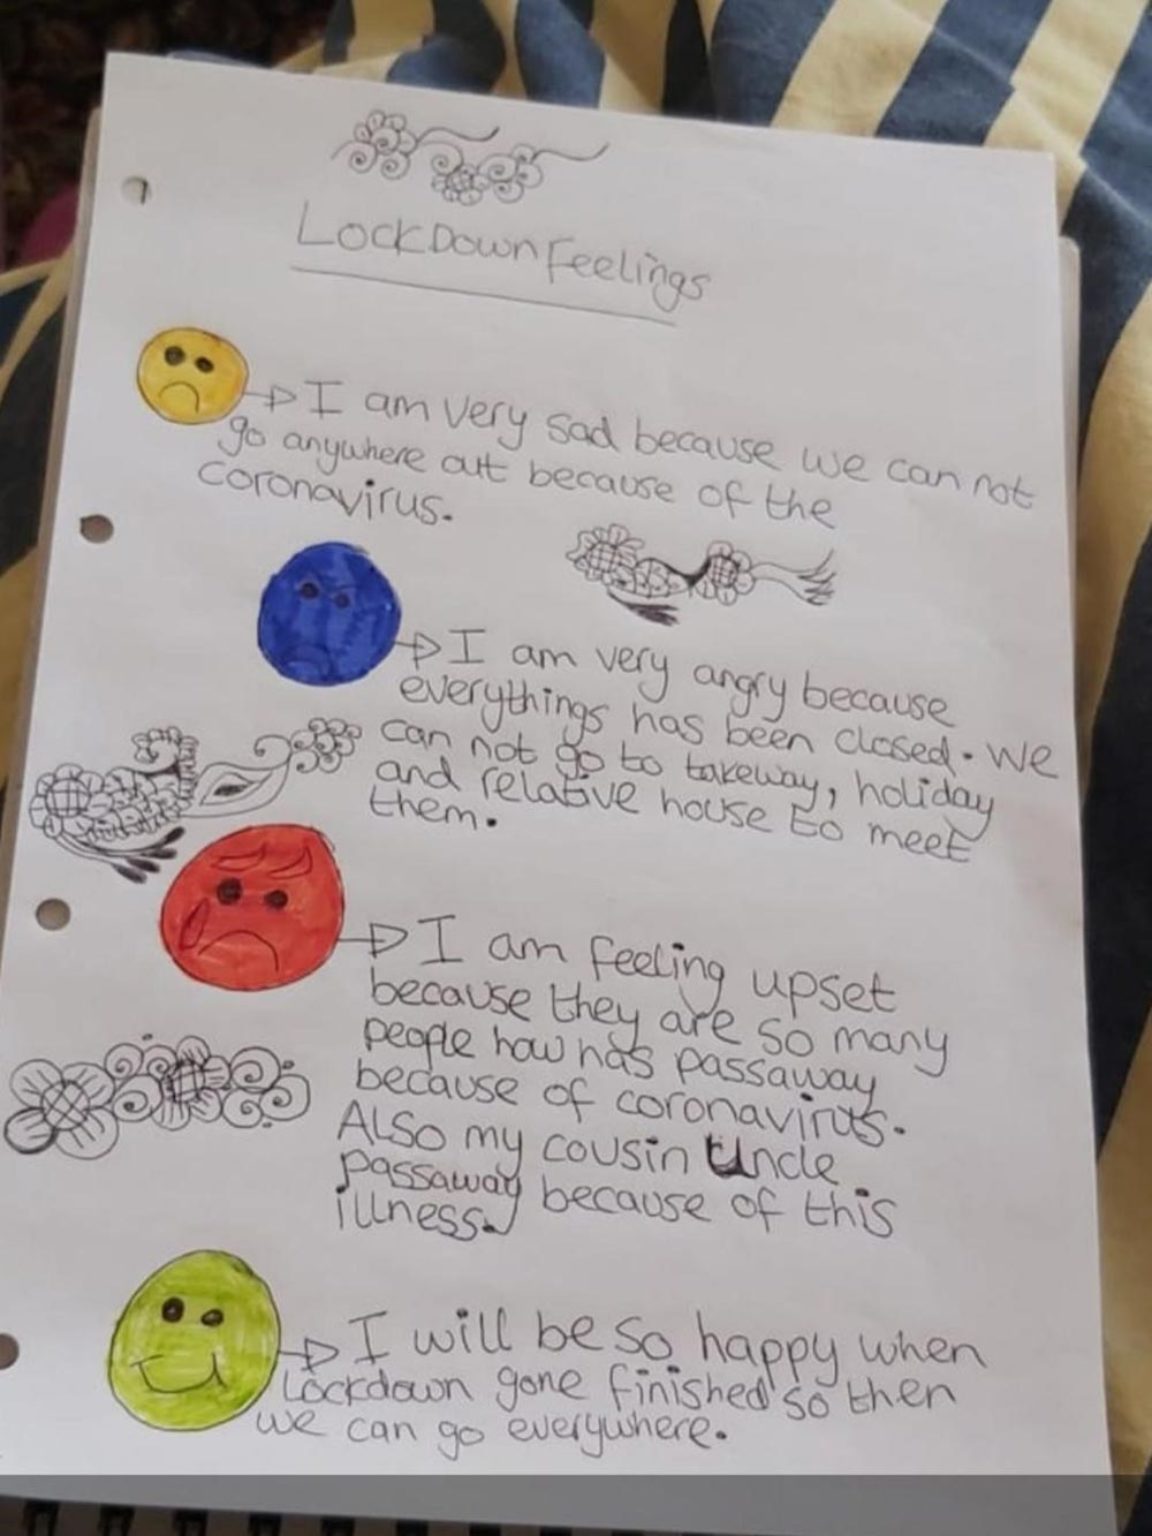 LockDown Feelings
I am very sad because we can not
go anywhere out because of the
coronavirus.
I am very angry because
everythings has been closed. We
can not go to takeway, holiday
and relative house to meet
them.
I am feeling upset
because they are so many
people how has passaway
because of coronavirus.
Also my cousin Uncle
passaway because of this
illness.
I will be so happy when
Lockdown gone finished so then
we can go everywhere.